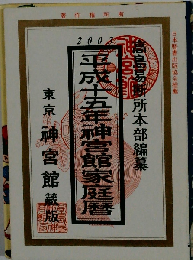 著作権所有
2003
高島易断所本部編纂
平成十五年神宮館家庭暦
東京 神宮館蔵版